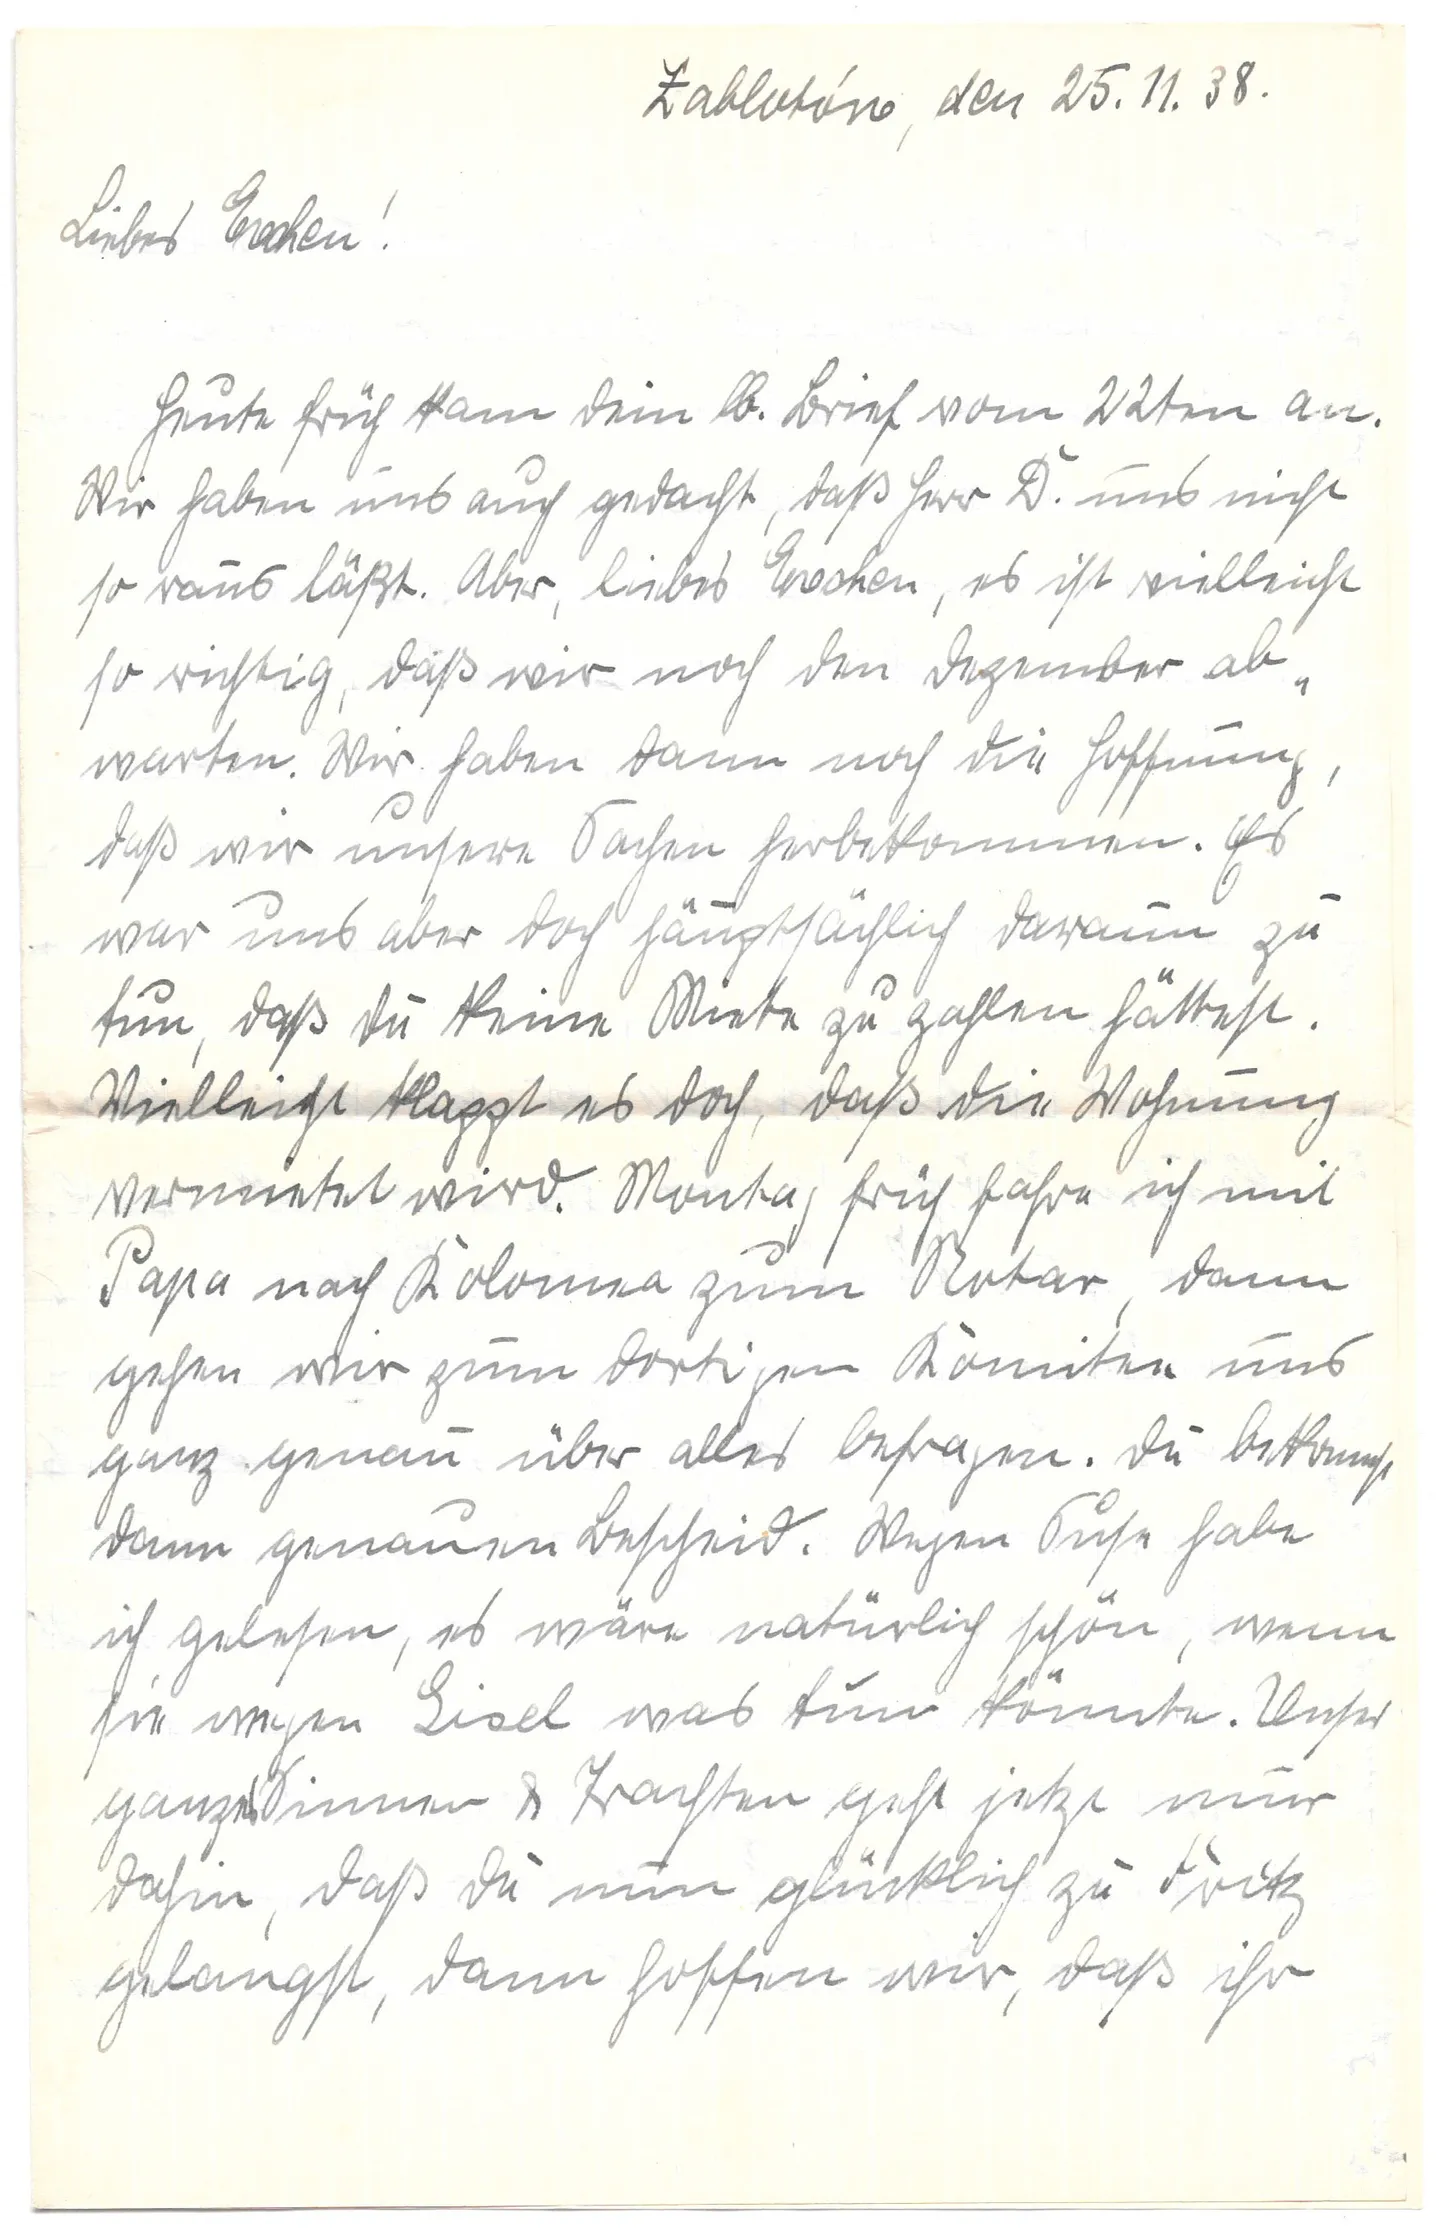 Zablotów, den 25.11.38.
Liebes Evchen!
Heute früh kam dein lb. Brief vom 22ten an.
Wir haben uns auch gedacht, daß Herr D. uns nicht
so raus läßt. Aber, liebes Evchen, es ist vielleicht
so richtig, daß wir noch den Dezember ab„
warten. Wir haben dann noch die Hoffnung,
daß wir unsere Sachen herbekommen. Es
war uns aber doch hauptsächlich darum zu
tun, daß du keine Miete zu zahlen hättest.
Vielleicht klappt es doch, daß die Wohnung
vermietet wird. Montag früh fahre ich mit
Papa nach Kolomea zum Notar, dann
gehen wir zum dortigen Komitee uns
ganz genau über alles befragen. Du bekommst
dann genauen Bescheid. Wegen Suse habe
ich gelesen, es wäre natürlich schön, wenn
sie wegen Gisel was tun könnte. Unser
ganzes Sinnen & Trachten geht jetzt nur
dahin, daß du nun glücklich zu Fritz
gelangst, dann hoffen wir, daß ihr